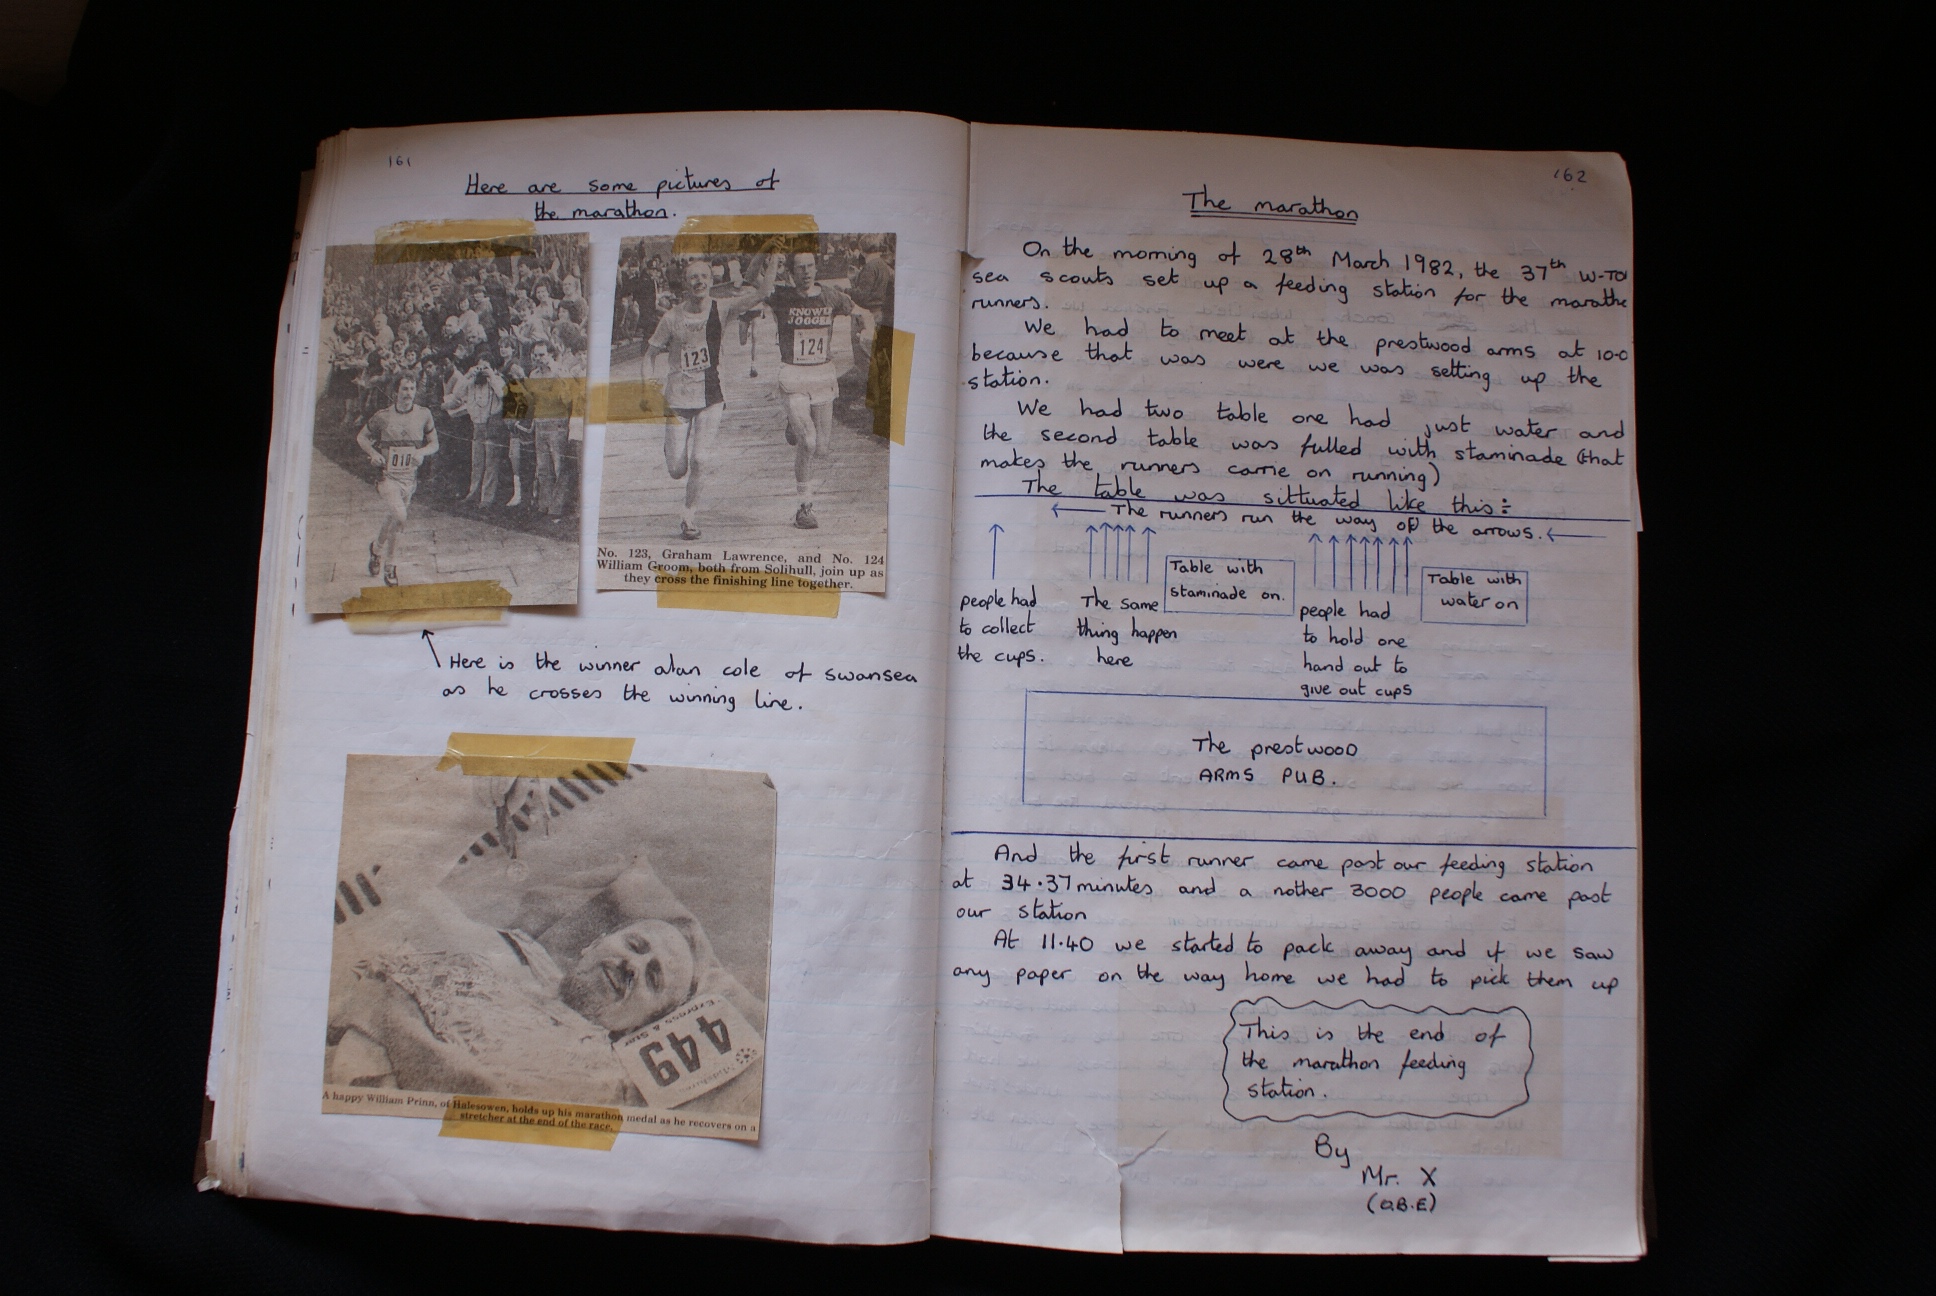 161
Here are some pictures of
the marathon.
010
123
KNOWLE
JOGGER
124
No. 123, Graham Lawrence, and No. 124
William Groom, both from Solihull, join up as
they cross the finishing line together.
Here is the winner alan cole of swansea
as he crosses the winning line.
449
Express & Star
A happy William Prinn, of Halesowen, holds up his marathon medal as he recovers on a
stretcher at the end of the race.
162
The marathon
On the morning of 28th March 1982, the 37th W-TO
sea scouts set up a feeding station for the marathe
runners.
We had to meet at the prestwood arms at 10-0
because that was were we was setting up the
station.
We had two table one had just water and
the second table was fulled with staminade (that
makes the runners carrie on running)
The table was sittuated like this:
The runners run the way of the arrows.
people had
to collect
the cups.
The same
thing happen
here
Table with
staminade on.
people had
to hold one
hand out to
give out cups
Table with
water on
The prestwood
ARMS PUB.
And the first runner came past our feeding station
at 34.37 minutes and a nother 3000 people came past
our station
At 11.40 we started to pack away and if we saw
any paper on the way home we had to pick them up
This is the end of
the marathon feeding
station.
By
Mr. X
(O.B.E)